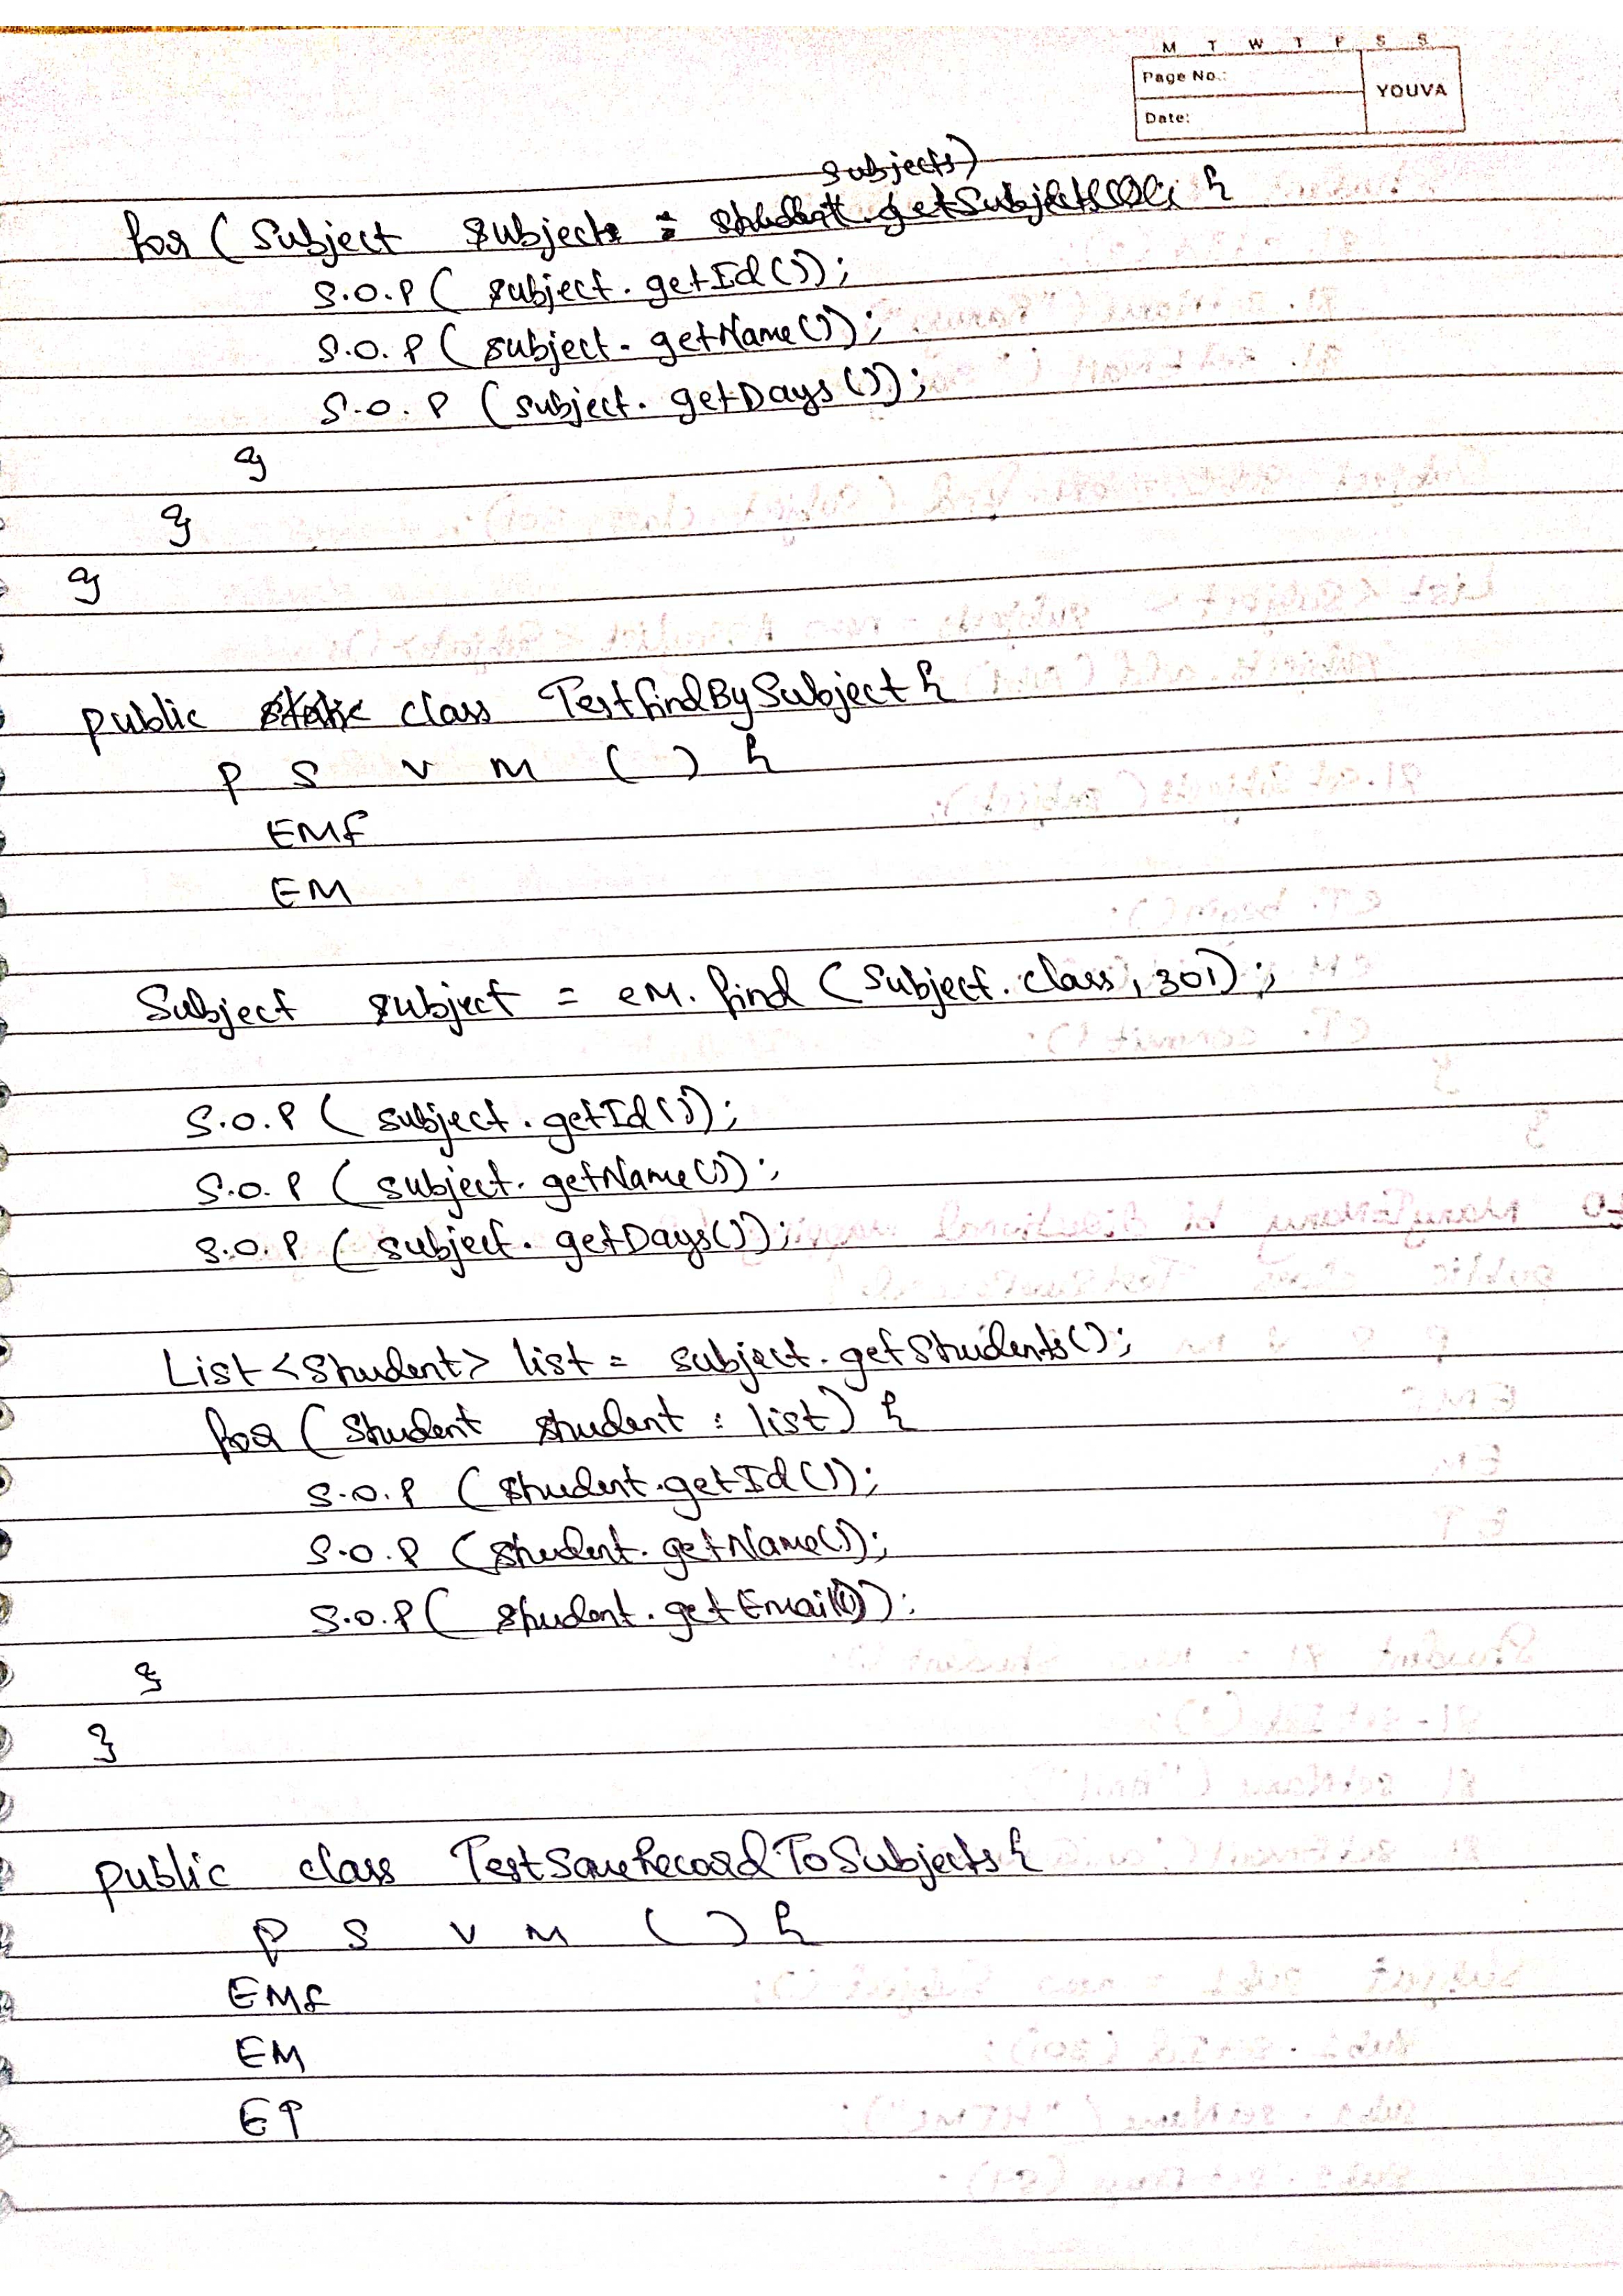 M T W T F S S
Page No.:
YOUVA
Date:
subjects)
for ( Subject subject : student.getSubjects() {
S.O.P ( subject. getId());
S.O.P ( subject. getName());
S.O.P (subject. getDays());
}
}
}
public static class TestfindBySubject {
p s v m ( ) {
EMF
EM
Subject subject = em. find (Subject. class, 301);
S.O.P ( subject. getId());
S.O.P ( subject. getName());
S.O.P ( subject. getDays());
List <Student> list = subject. getStudents();
for ( Student student : list) {
S.O.P (student.getId());
S.O.P (student. getName());
S.O.P ( student. getEmail());
}
}
public class TestSaveRecordToSubjects {
p s v m ( ) {
EMF
EM
ET